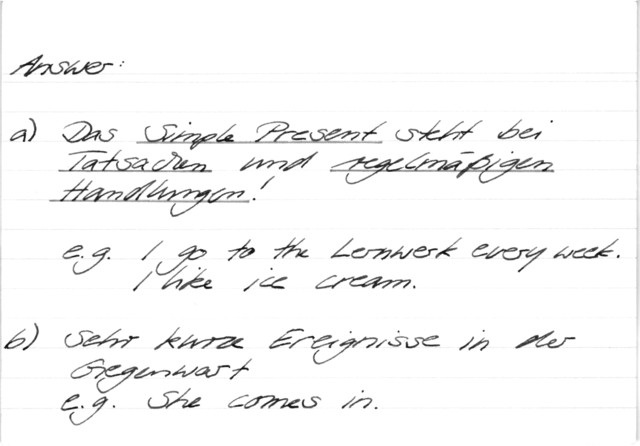 Answer:
a) Das Simple Present steht bei
Tatsachen und regelmäßigen
Handlungen!
e.g. I go to the Lernwerk every week.
I like ice cream.
b) Sehr kurze Ereignisse in der
Gegenwart
e.g. She comes in.